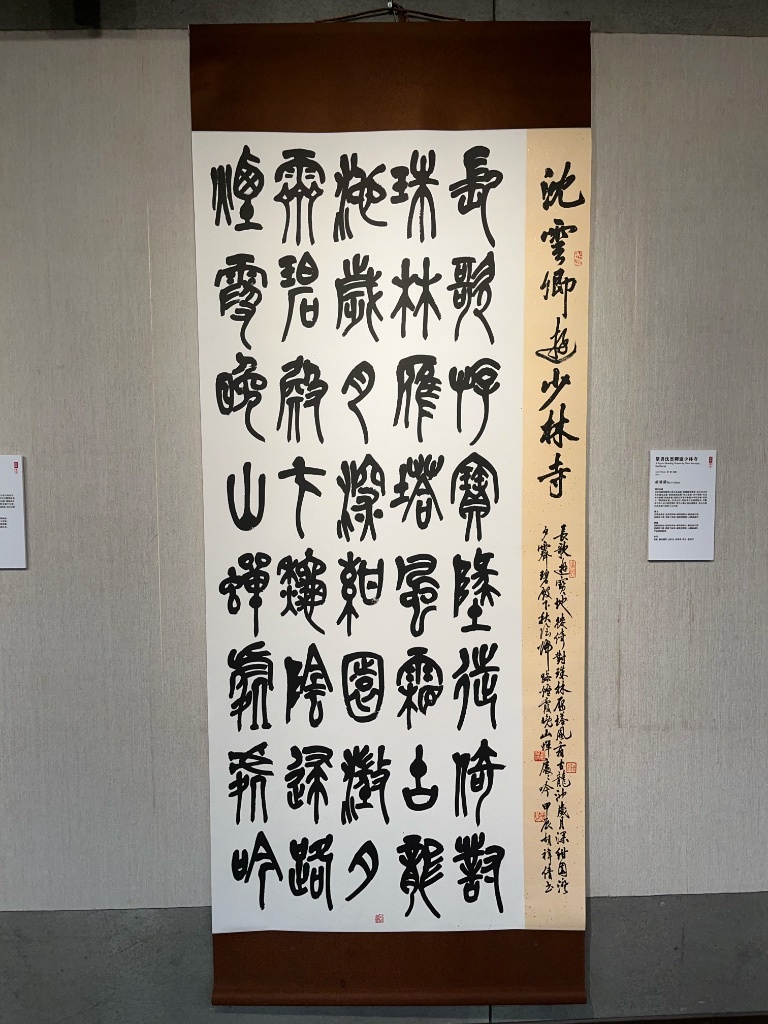 沈雲卿遊少林寺
長歌遊寶地徙倚對珠林雁塔風霜古龍池歲月深紺園澄
夕霽碧殿下秋陰歸路煙霞晚山蟬處〻吟 甲辰
長歌游寶墬徙倚對
珠林雁塔風霜古龍
池歲月深紺園澂夕
霽碧殿下秋陰歸路
煙霞晚山蟬處處吟
篆書沈雲卿遊少林寺